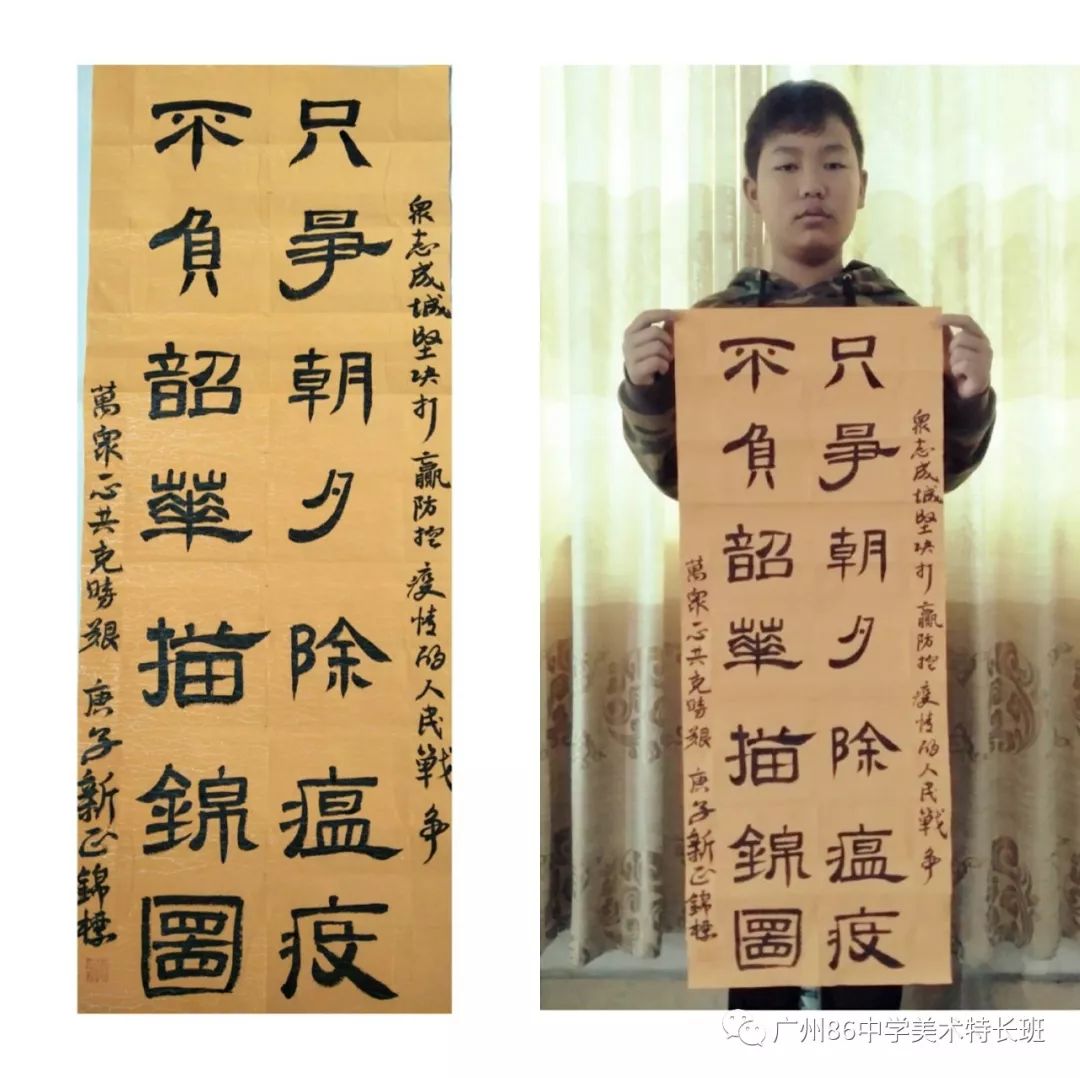 衆志成城堅决打赢防控疫情的人民戰争
只爭朝夕除瘟疫
不負韶華描錦圖
萬衆一心共克時艱 庚子新正錦標
衆志成城堅决打赢防控疫情的人民戰争
只爭朝夕除瘟疫
不負韶華描錦圖
萬衆一心共克時艱 庚子新正錦標
广州86中学美术特长班